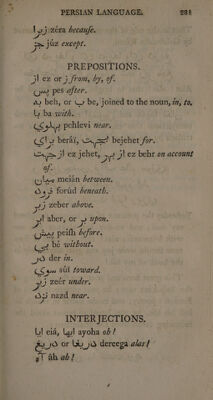 PERSIAN LANGUAGE. 281
زیرا zéra because.
جز júz except.
PREPOSITIONS.
از ez or ز from, by, of.
پس pes after.
به beh, or ب be, joined to the noun, in, to,
با ba with.
پهلوی pehlevi near.
برای beráï, بجهت bejehet for.
از جهت ez jehet, از بهر ez behr on account
of.
میان meïán between.
فرود forúd beneath.
زبر zeber above.
بر aber, or بر upon.
پیش peïsh before.
بی bé without.
در der in.
سوی súï toward.
زیر zeér under.
نزد nazd near.
INTERJECTIONS.
ایا eiá, ایها ayoha oh!
دریغ or دریغا dereega alas!
آه áh ah!